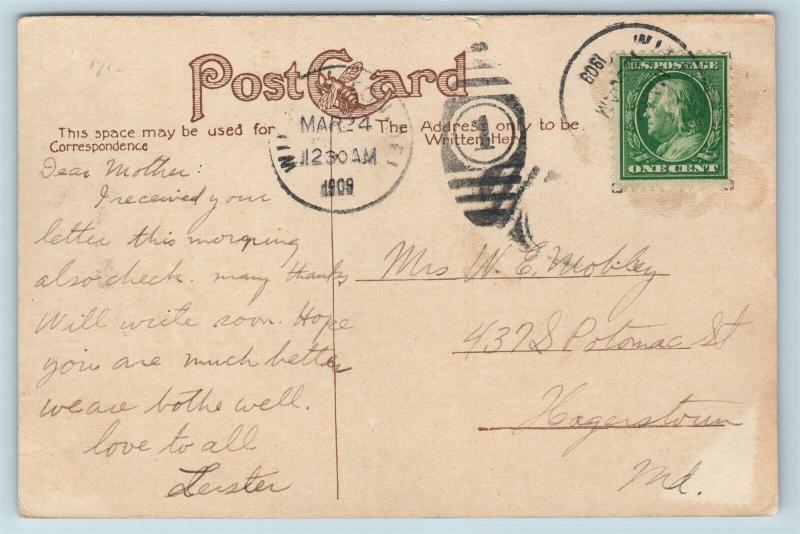 Post Card
This space may be used for
Correspondence
The Address only to be
Written Here
MAR 24
12 30 AM
1909
1
1909
U.S. POSTAGE
ONE CENT
Dear Mother:
I received your
letter this morning
also check. many thanks
Will write soon. Hope
you are much better
we are bothe well.
love to all
Mrs W. E. Mobley
437 S Potomac St
Hagerstown
Md.